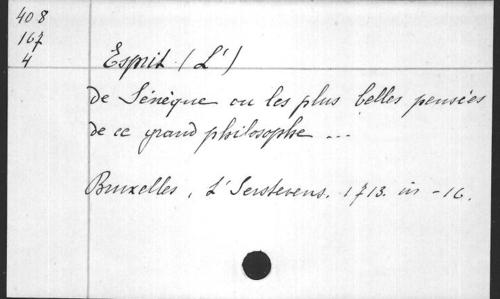 408
167
4
Esprit (L')
de Sénèque ou les plus belles pensées
de ce grand philosophe ...
Bruxelles, t'Serstevens. 1713. in-16.